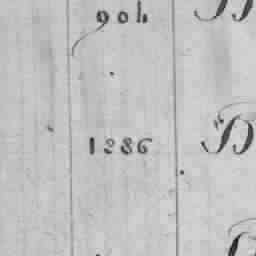 904 B
1286 B